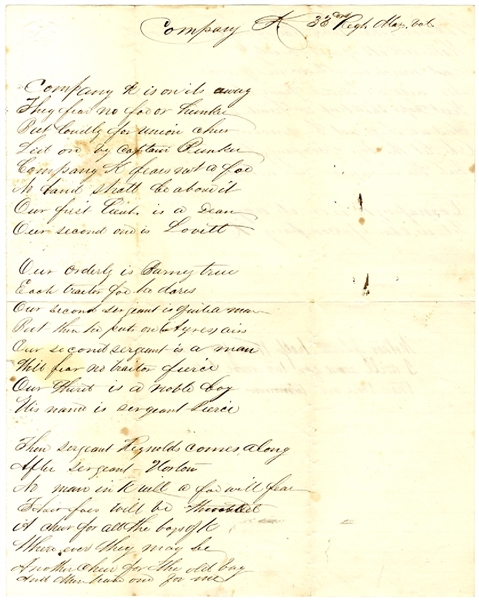 Company K 33rd Regt Mass. Vol
Company K is on its away
They fear no foe or
But loudly for union cheer
Led on by Captain Bunker
Company K fears not a foe
No land shall be above it
Our first Lieut. is a Dean
Our second one is Lovitt
Our orderly is Barney true
Each traitor foe he dares
Our second sergeant is quite a man
But then he puts on Ayres airs
Our second sergeant is a man
Will fear no traitor fierce
Our third is a noble boy
His name is sergeant Pierce
Then sergeant Reynolds comes along
After sergeant Horton
No man in K will a foe will fear
foes will be
A cheer for all the boys of K
Where ever they may be
Another cheer for the old bay
And then have one for me